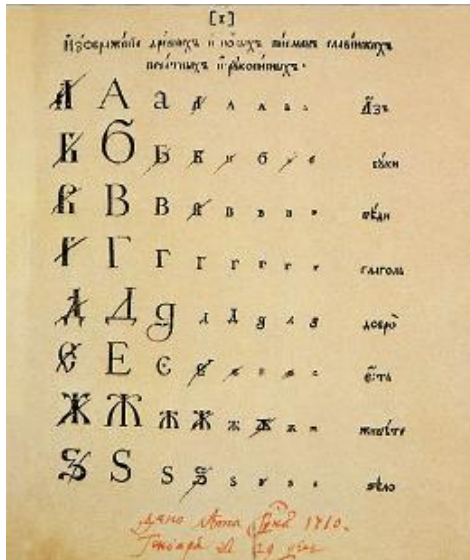 [ı]
И҆зображе́нїе дре́внихъ и҆ но́выхъ пи́сменъ славе́нскихъ
печа́тныхъ и҆ рꙋкопи́сныхъ.
А А а а а а а а а҆́зъ
Б Б Б Б б б б б бꙋ́ки
В В в в в в в в вѣ́ди
Г Г г г г г г г глаго́ль
Д Д д д д д д д добро̀
Є Е є є е е е є є҆́сть
Ж Ж ж ж ж ж ж ж живѣ́те
Ѕ Ѕ ѕ ѕ ѕ ѕ ѕ ѕ ѕѣлѡ̀
дано лѣта 1710.
29